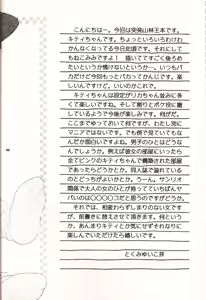 こんにちはー。今回は突発山林王本です。
キティちゃんです。ちょっといろいろわけわ
かんなくなってる今日此頃です。それにして
もねこみみですよ！　描いててすごく萌るめ
たいというか情けないというかー。いつもバ
カだけど今回もっとバカってかんじです。楽
しいんですけど。いいのかこれで。
キティちゃんは設定がリカちゃん並みに多
くて楽しいですね。そして割りとボケ役に徹
しているようで今後が楽しみです。何がだ。
ここまでゆっておいて何ですが、わたし別に
マニアではないです。でも側で見ていてもな
んだか面白いですよね。男子のひとはどうな
んでしょうか。例えば彼女の部屋にいったら
全てピンクのキティちゃんで構築された部屋
であったらどうかとか。同人誌で溢れている
のとどっちがよいかとか。うーん。サンリオ
関係で大人の女のひとが持っていちばんヤ
バいのは〇〇〇〇コだと思うのですがどうか。
それでは、相変わらずしまりのない文です
が、前書きに替えさせて頂きます。何という
か、あんまりキティとか気にせずそれなりに
楽しんでいただけたら嬉しいです。
とくみゆいこ拝